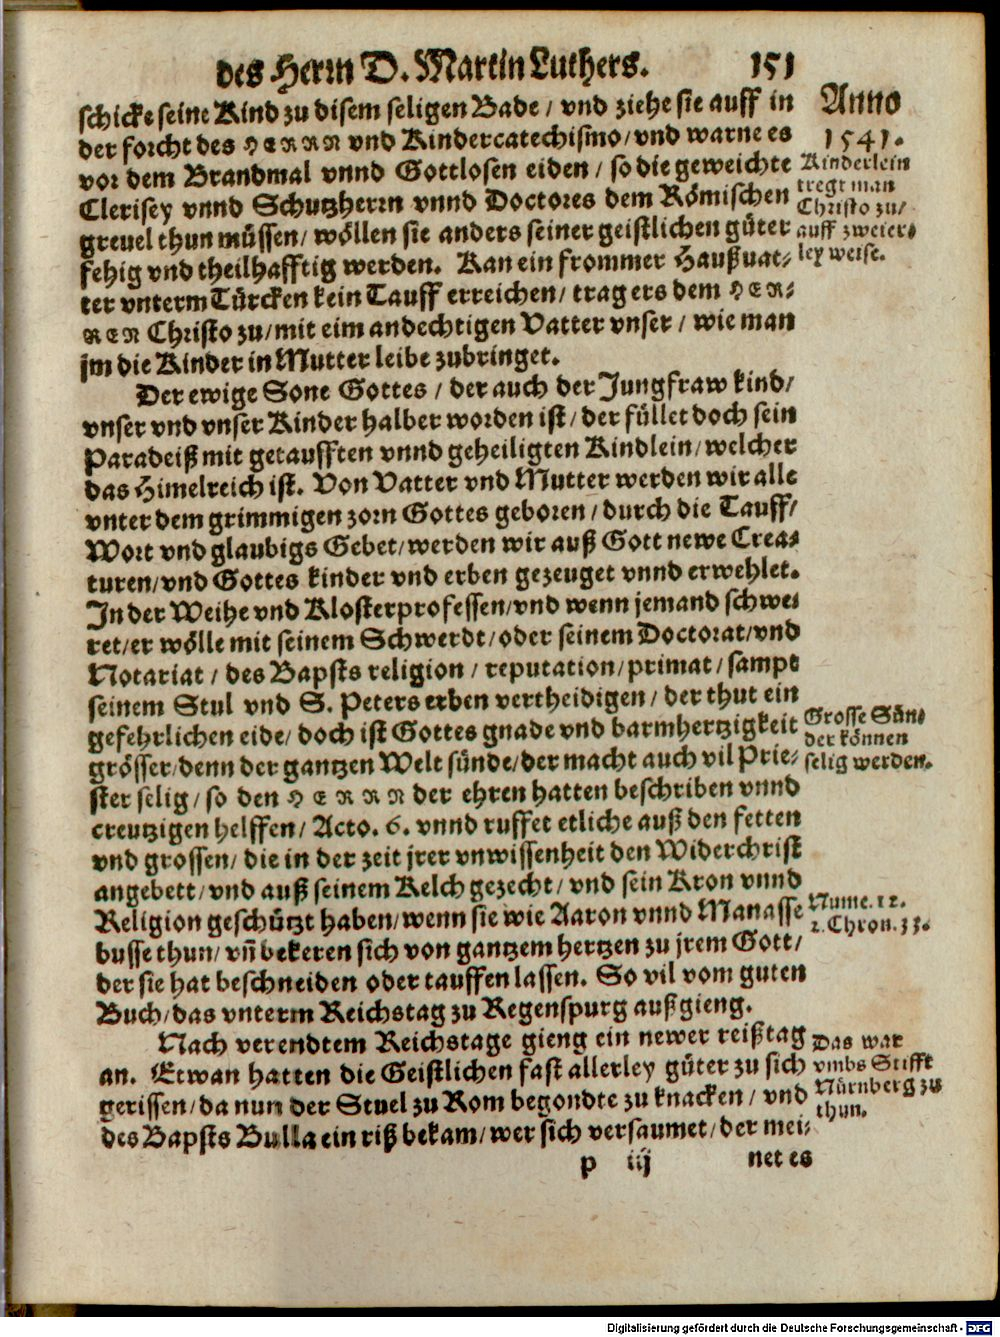 des Herrn D. Martin Luthers. 151
schicke seine Kind zu disem seligen Bade / vnd ziehe sie auff in
der forcht des HERRN vnd Kindercatechismo / vnd warne es
vor dem Brandmal vnnd Gottlosen eiden / so die geweichte
Clerisey vnnd Schutzherrn vnnd Doctores dem Römischen
grevel thun müssen / wöllen sie anders seiner geistlichen güter
fehig vnd theilhafftig werden. Kan ein frommer Haußvat-
ter vnterm Türcken kein Tauff erreichen / trag ers dem HER-
REN Christo zu / mit eim andechtigen Vatter vnser / wie man
jm die Kinder in Mutter leibe zubringet.
Der ewige Sone Gottes / der auch der Jungfraw kind /
vnser vnd vnser Kinder halber worden ist / der füllet doch sein
Paradeiß mit getaufften vnnd geheiligten Kindlein / welcher
das Himelreich ist. Von Vatter vnd Mutter werden wir alle
vnter dem grimmigen zorn Gottes geboren / durch die Tauff /
Wort vnd glaubigs Gebet / werden wir auß Gott newe Crea-
turen / vnd Gottes kinder vnd erben gezeuget vnnd erwehlet.
In der Weihe vnd Klosterprofessen / vnd wenn jemand schwe-
ret / er wölle mit seinem Schwerdt / oder seinem Doctorat / vnd
Notariat / des Bapsts religion / reputation / primat / sampt
seinem Stul vnd S. Peters erben vertheidigen / der thut ein
gefehrlichen eide / doch ist Gottes gnade vnd barmhertzigkeit
grösser / denn der gantzen Welt sünde / der macht auch vil Prie-
ster selig / so den HERRN der ehren hatten beschriben vnnd
creutzigen helffen / Acto. 6. vnnd ruffet etliche auß den fetten
vnd grossen / die in der zeit jrer vnwissenheit den Widerchrist
angebett / vnd auß seinem Kelch gezecht / vnd sein Kron vnnd
Religion geschützt haben / wenn sie wie Aaron vnnd Manasse
busse thun / vñ bekeren sich von gantzem hertzen zu jrem Gott /
der sie hat beschneiden oder tauffen lassen. So vil vom guten
Buch / das vnterm Reichstag zu Regenspurg außgieng.
Nach verendtem Reichstage gieng ein newer reißtag
an. Etwan hatten die Geistlichen fast allerley güter zu sich
gerissen / da nun der Stuel zu Rom begondte zu knacken / vnd
des Bapsts Bulla ein riß bekam / wer sich versaumet / der mei-
p iij net es
Anno
1541.
Kinderlein
tregt man
Christo zu /
auff zweier-
ley weise.
Grosse Sün-
der können
selig werden.
Nume. 12.
2. Chron. 33.
Das war
vmbs Stifft
Nürnberg zu
thun.
Digitalisierung gefördert durch die Deutsche Forschungsgemeinschaft - DFG